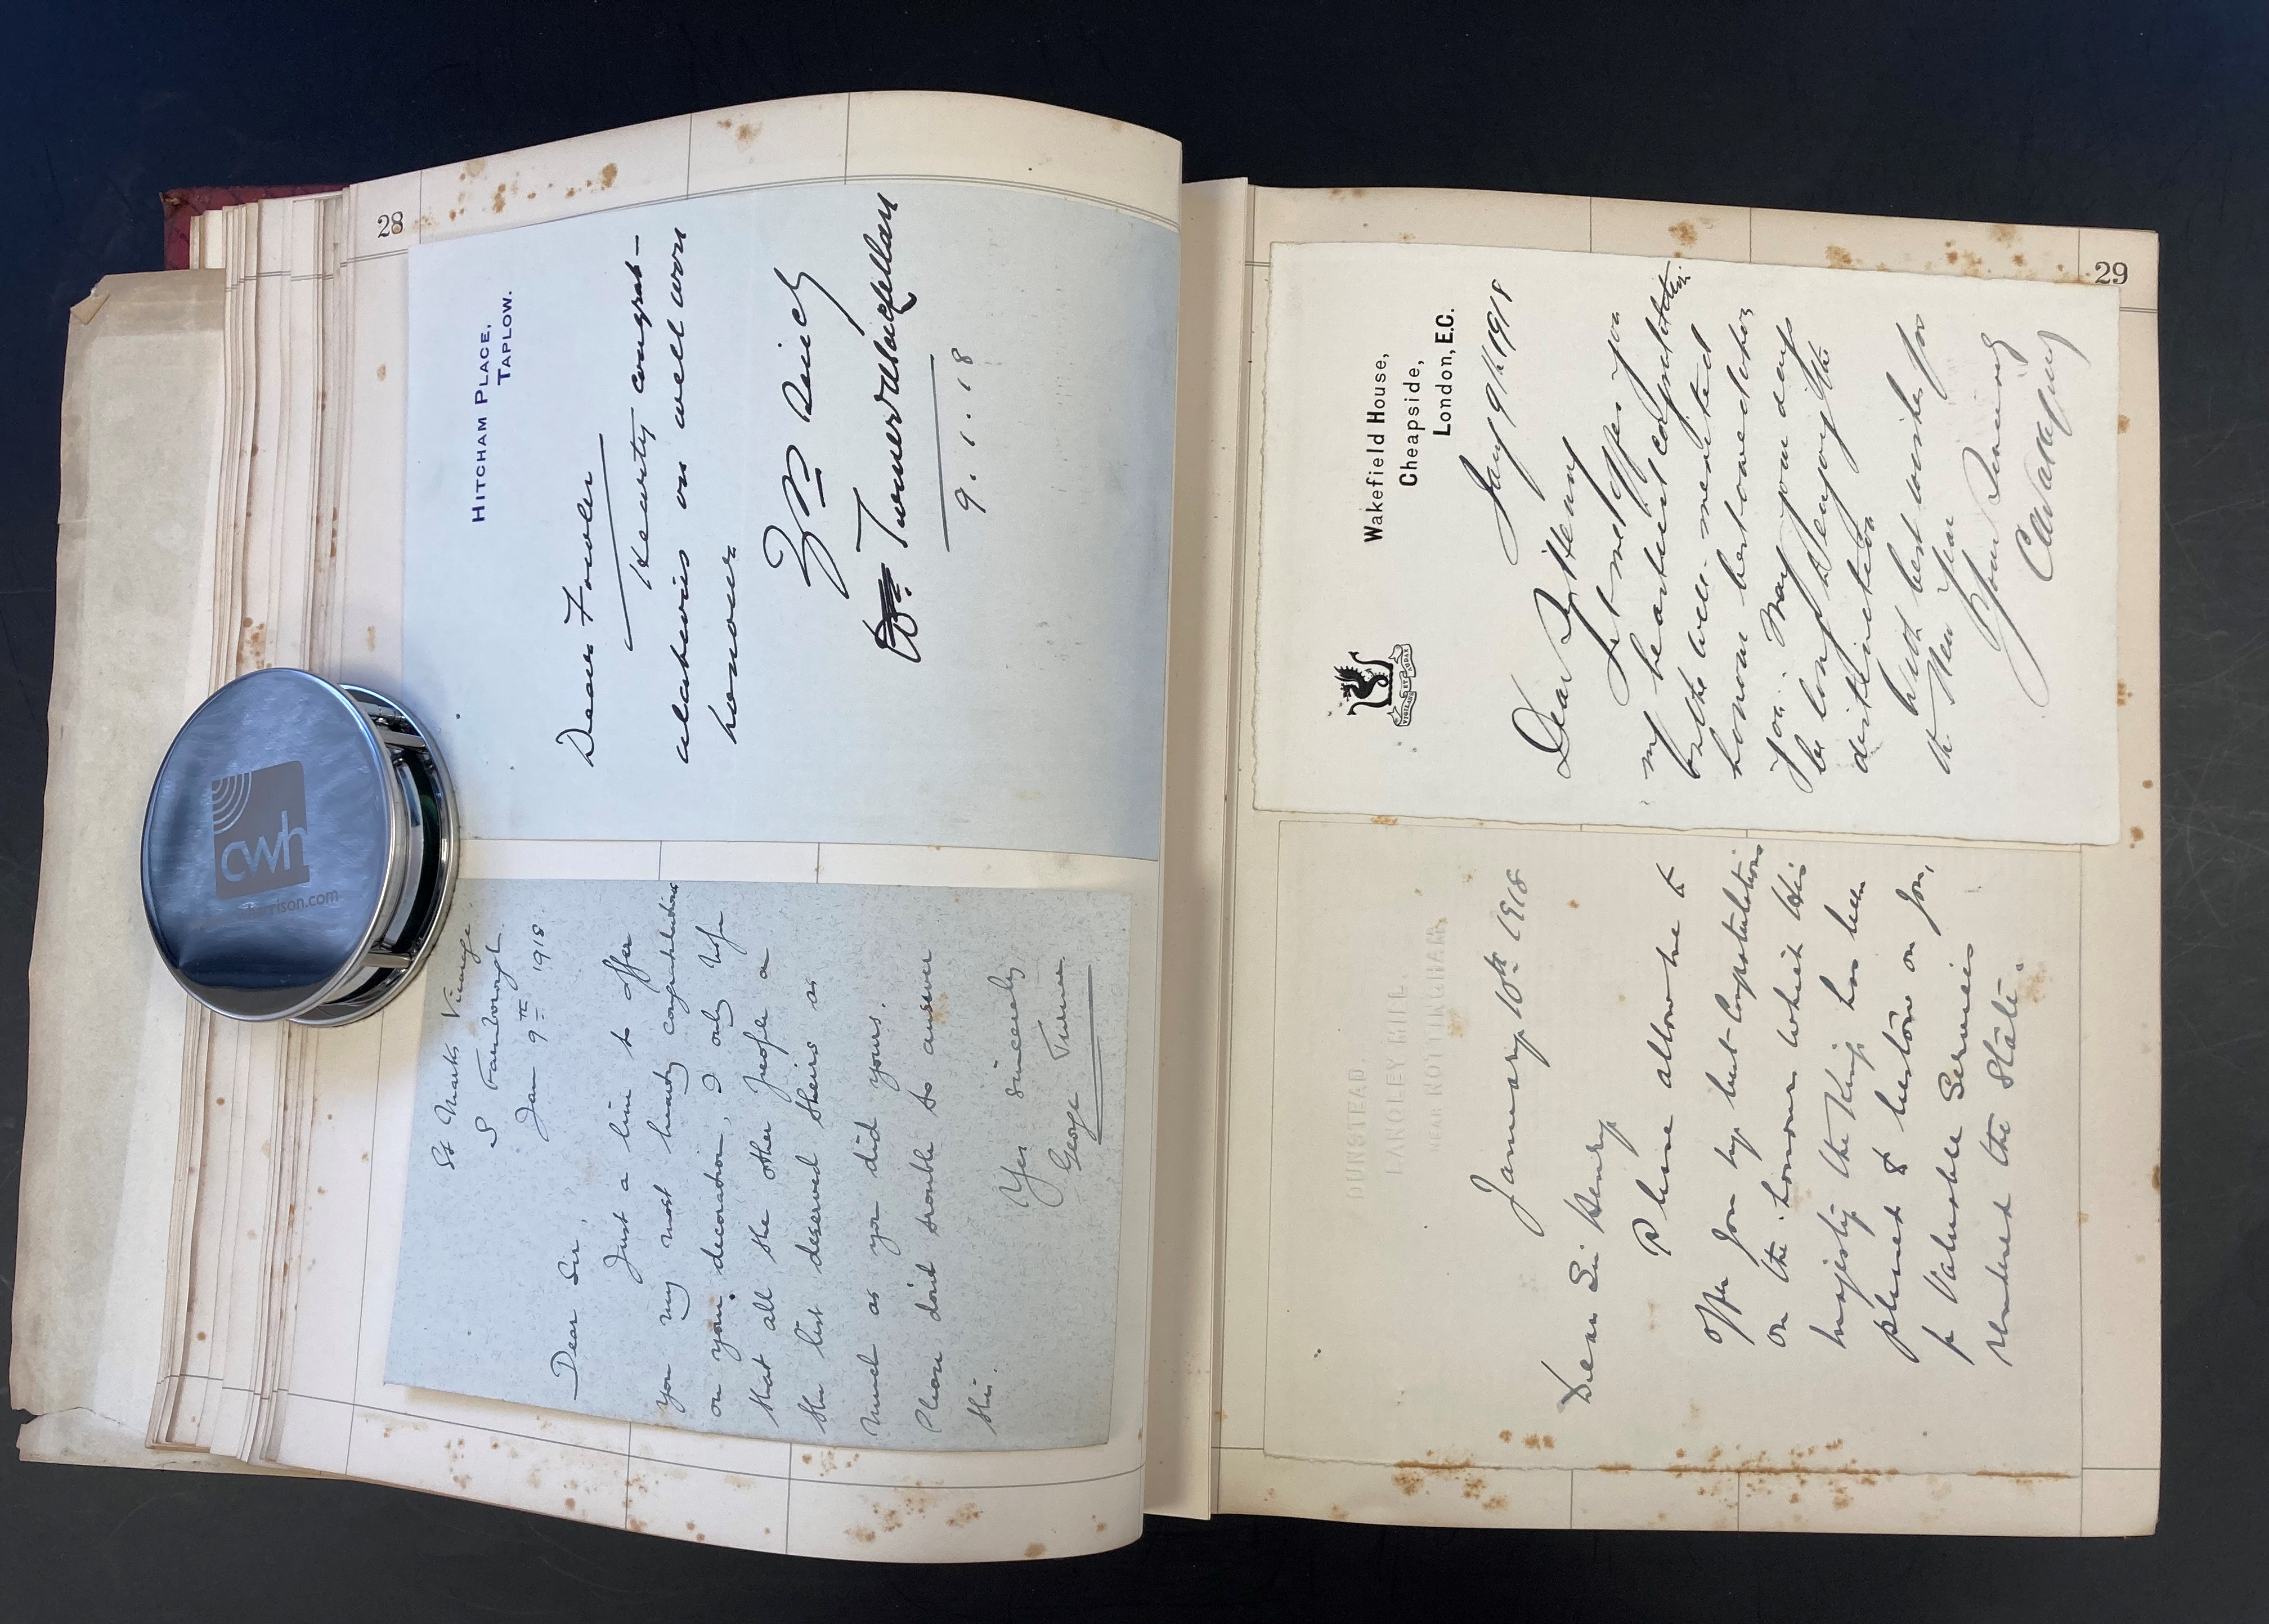 28
St Marks Vicarage
S Farnborough.
Jan 9th 1918
Dear Sir,
Just a line to offer
you my most hearty congratulations
on your decoration, I only hope
that all the other people a
the list deserved theirs as
much as you did yours.
Please don't trouble to answer
this.
Yrs sincerely
George Turner.
HITCHAM PLACE,
TAPLOW.
Dear Fowler
Hearty congrat-
ulations on well won
honours.
Yrs sincly
Turner Macllan
9.1.18
29
DUNSTEAD.
LANGLEY MILL.
NEAR NOTTINGHAM.
January 10th 1918
Dear Sir Henry
Please allow me to
offer you my best Congratulations
on the honour which His
Majesty the King has been
pleased to bestow on you,
for Valuable Services
rendered the State.
Wakefield House,
Cheapside,
London, E.C.
Jany 9th 1918
Dear Sir Henry
Let me offer you
my heartiest congratulations
on the well-merited
honour bestowed upon
you. May your days
be long to enjoy the
distinction
With best wishes for
the New Year
Yours Sincerely
CWakefield
cwh